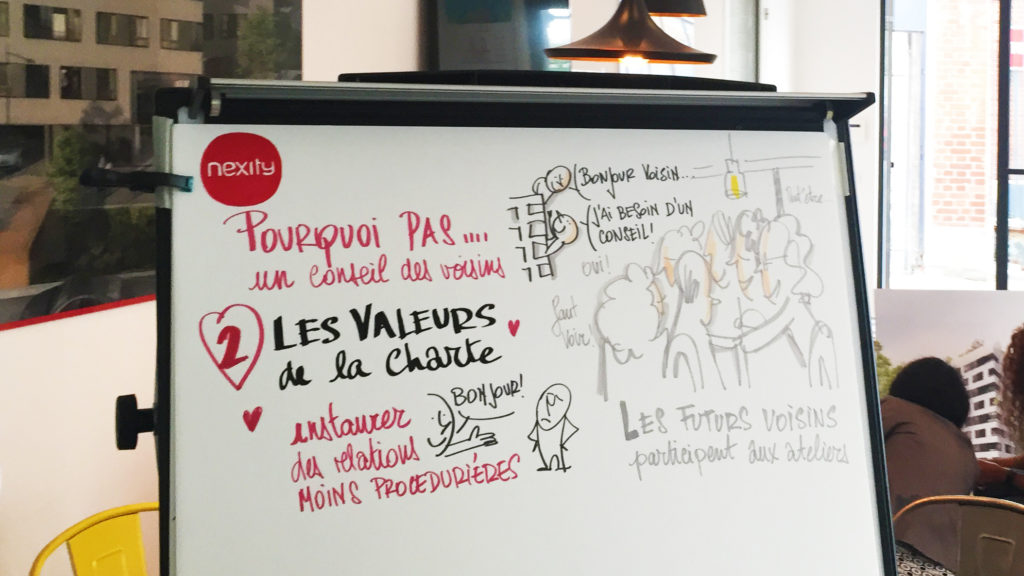 nexity
POURQUOI PAS....
un conseil des voisins
BONJOUR VOISIN...
J'AI BESOIN D'UN
CONSEIL!
oui!
Faut
Voir!
2
LES VALEURS
de la Charte
BONJOUR!
instaurer
des relations
MOINS PROCEDURIÈRES
LES FUTURS VOISINS
participent aux ateliers